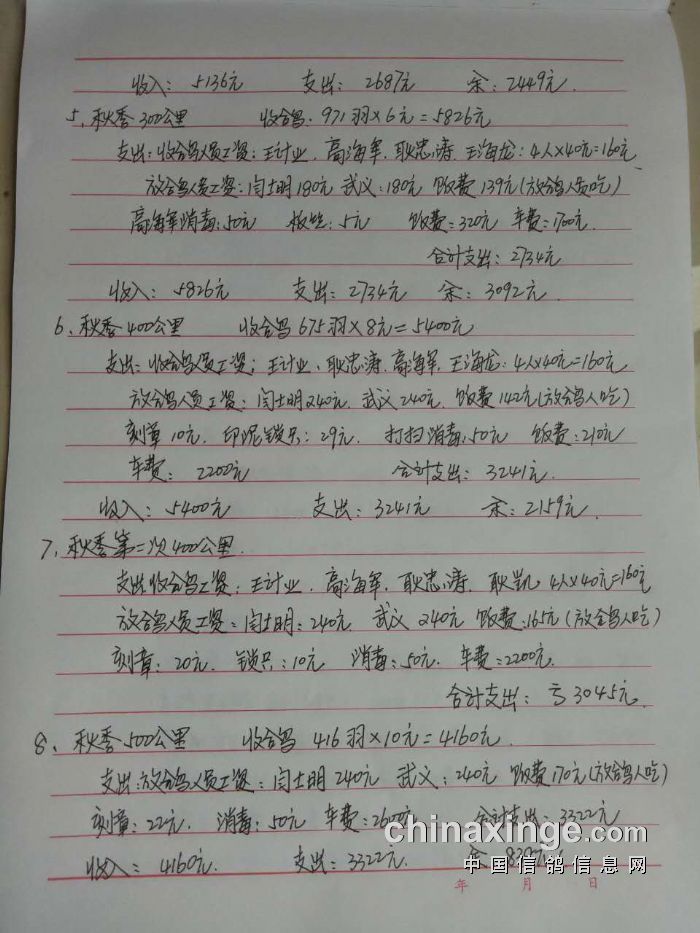 收入：5136元 支出：2687元 余：2449元
5、秋季300公里 收鸽：971羽×6元=5826元
支出：收鸽人员工资：王计业、高海军、耿忠涛、王海龙：4人×40元=160元
放鸽人员工资：闫士明180元 武义：180元 饭费139元(放鸽人员吃)
高海军消毒：50元 板丝：5元 饭费：320元 车费：1700元
合计支出：2734元
收入：5826元 支出：2734元 余：3092元
6、秋季400公里 收鸽675羽×8元=5400元
支出：收鸽人员工资：王计业、耿忠涛、高海军、王海龙：4人×40元=160元
放鸽人员工资：闫士明240元 武义240元 饭费142元(放鸽人吃)
刻章10元、印泥锁只：29元、打扫消毒：50元 饭费：210元
车费：2200元 合计支出：3241元
收入：5400元 支出：3241元 余：2159元
7、秋季第二次400公里
支出收鸽工资：王计业、高海军、耿忠涛、耿凯 4人×40元=160元
放鸽人员工资：闫士明：240元 武义240元 饭费：165元(放鸽人吃)
刻章：20元、锁只：10元 消毒：50元、车费：2200元
合计支出：亏3045元
8、秋季500公里 收鸽416羽×10元=4160元
支出：放鸽人员工资：闫士明240元 武义：240元 饭费170元(放鸽人吃)
刻章：22元、消毒：50元 车费：2600元 合计支出：3322元
收入：4160元 支出：3322元 余
chinaxinge.com
中国信鸽信息网
年 月 日